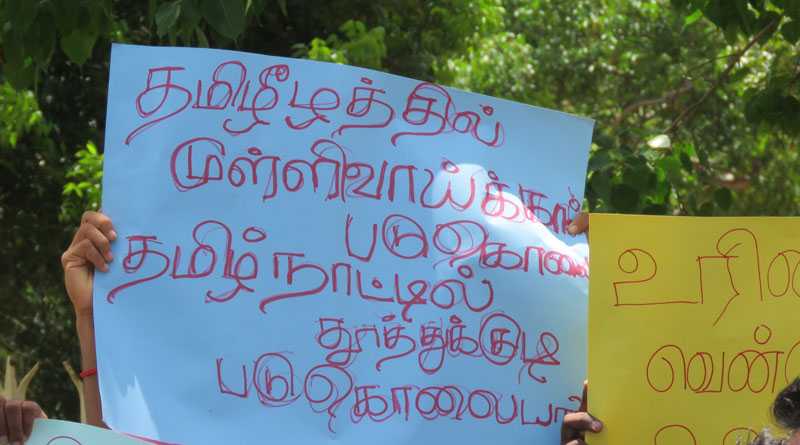 தமிழீழத்தில்
முள்ளிவாய்க்கால்
படுகொலை
தமிழ்நாட்டில்
தூத்துக்குடி
படுகொலையா
உரி
வென்